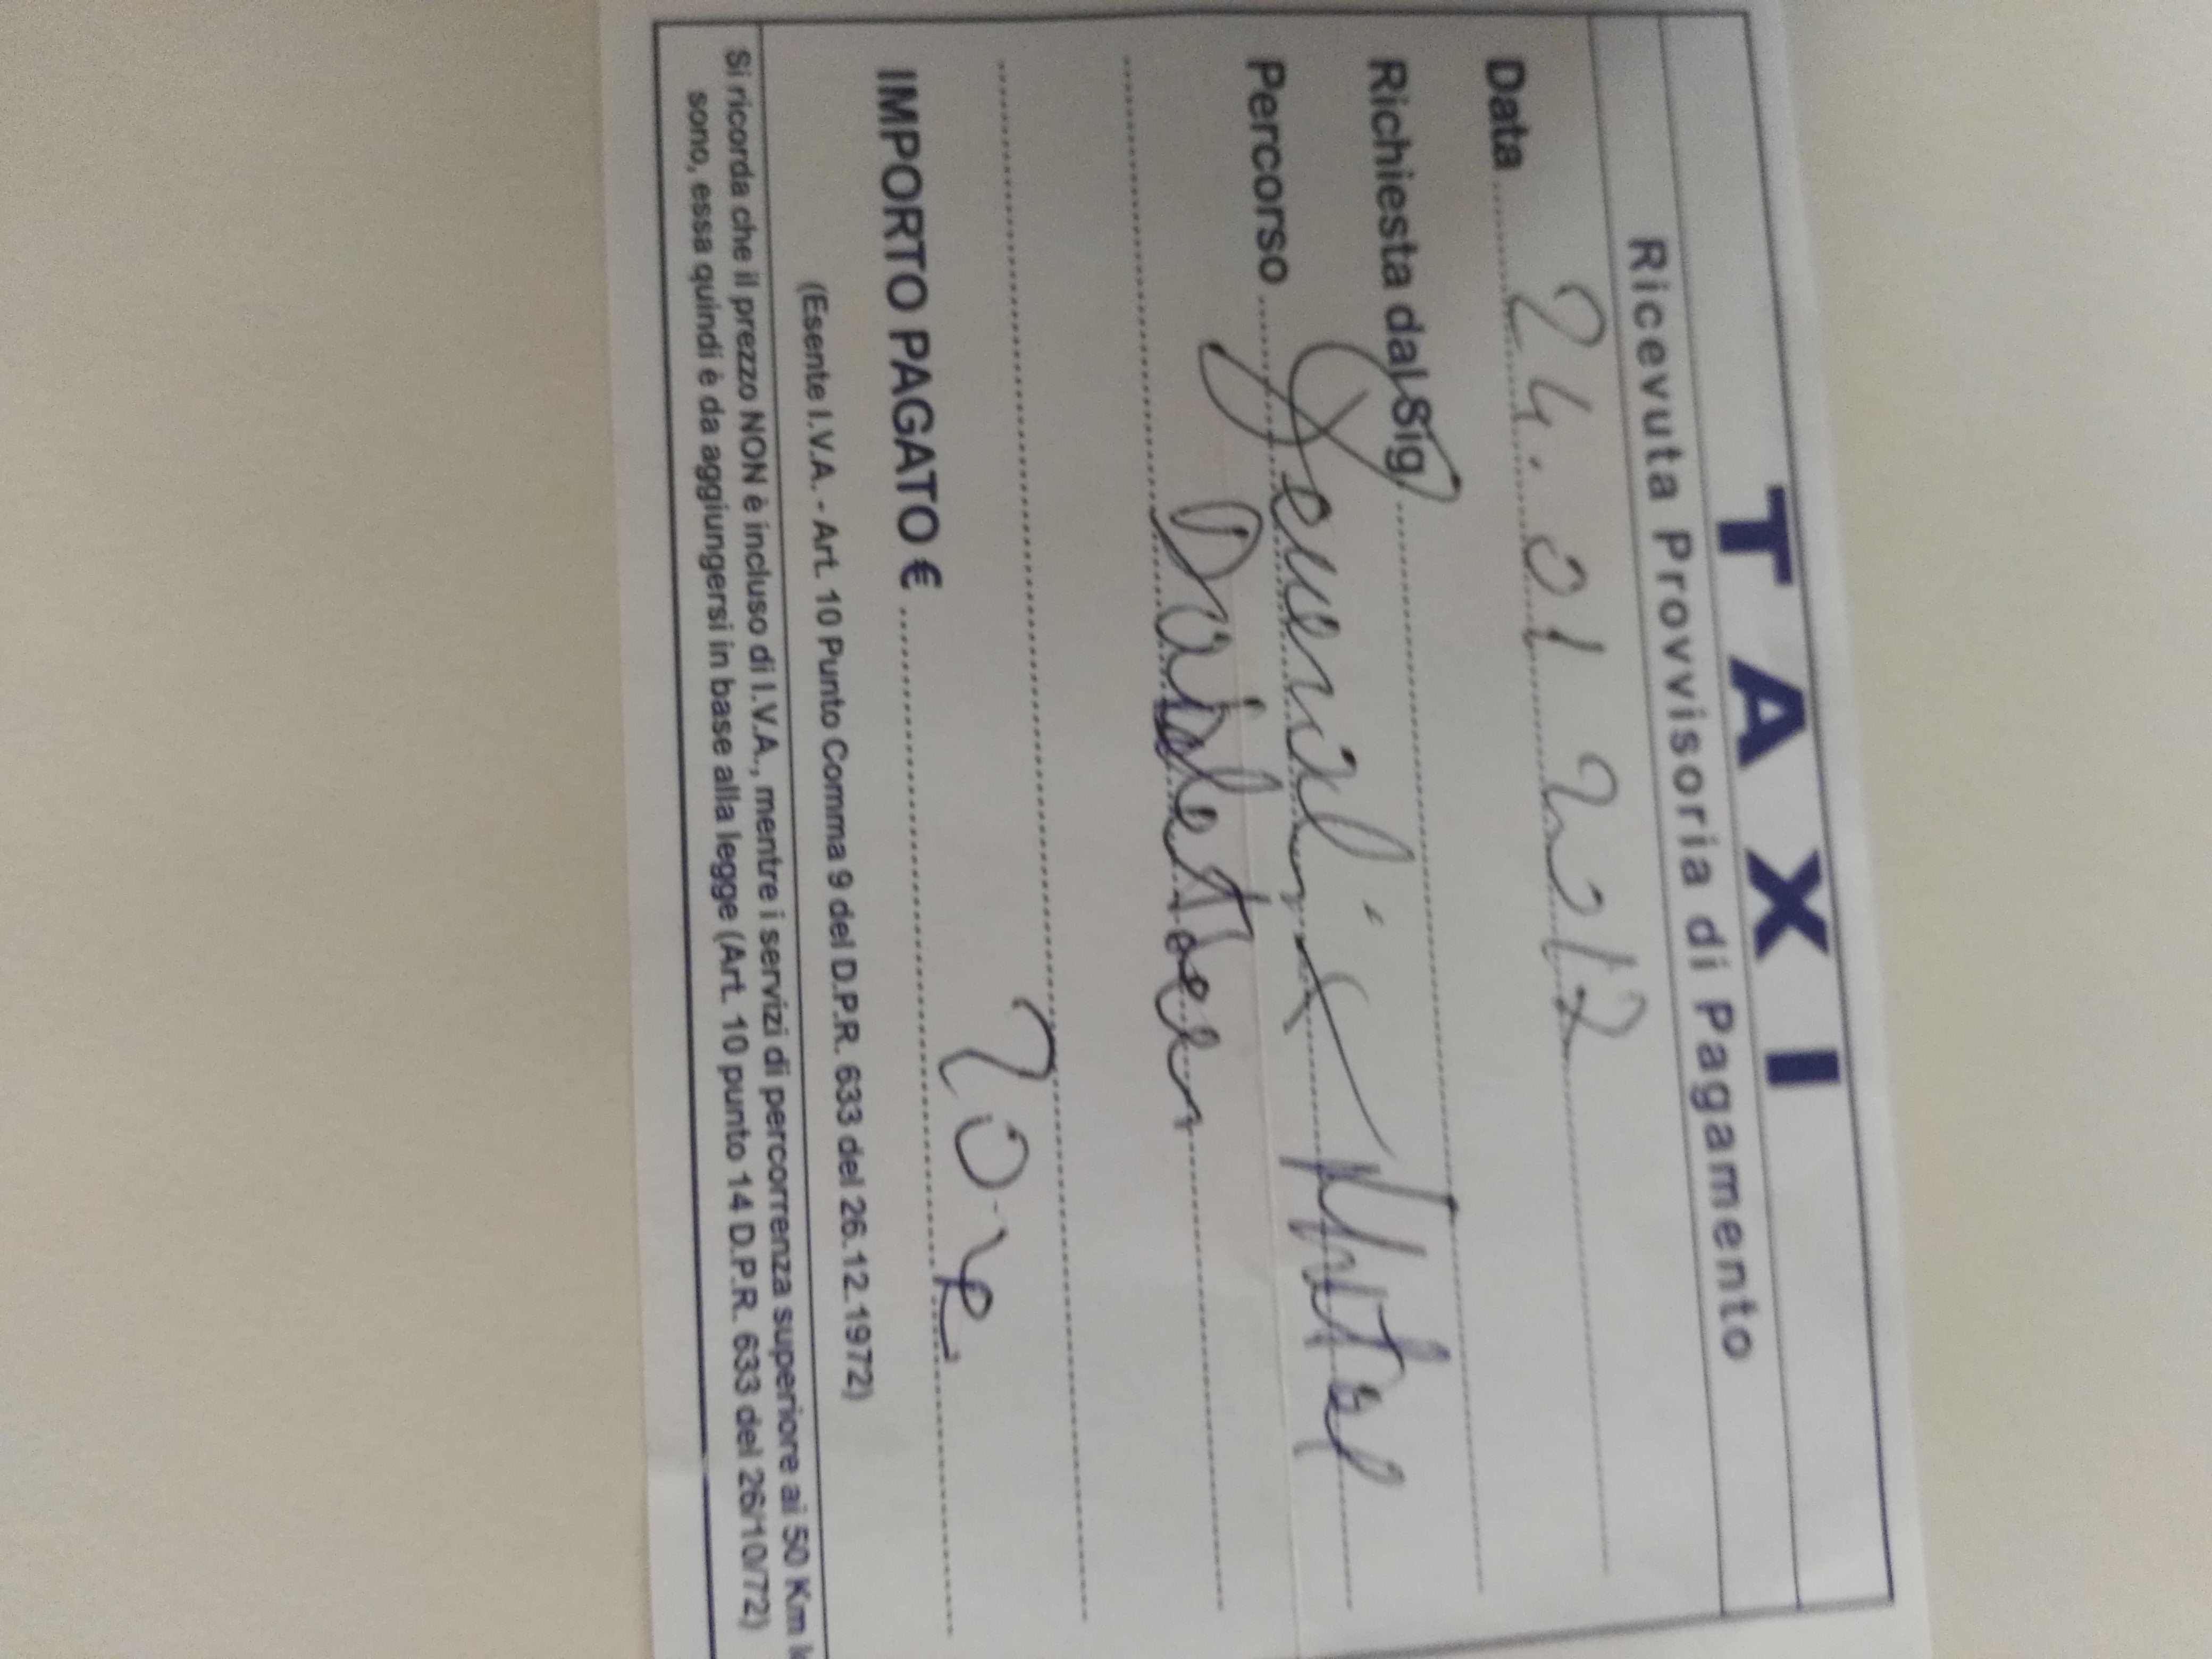 TAXI
Ricevuta Provvisoria di Pagamento
Data 24.01 2012
Richiesta dal Sig
Percorso
IMPORTO PAGATO €
(Esente I.V.A. - Art. 10 Punto Comma 9 del D.P.R. 633 del 26.12.1972)
Si ricorda che il prezzo NON è incluso di I.V.A., mentre i servizi di percorrenza superiore ai 50 Km
sono, essa quindi è da aggiungersi in base alla legge (Art. 10 punto 14 D.P.R. 633 del 26/10/72)